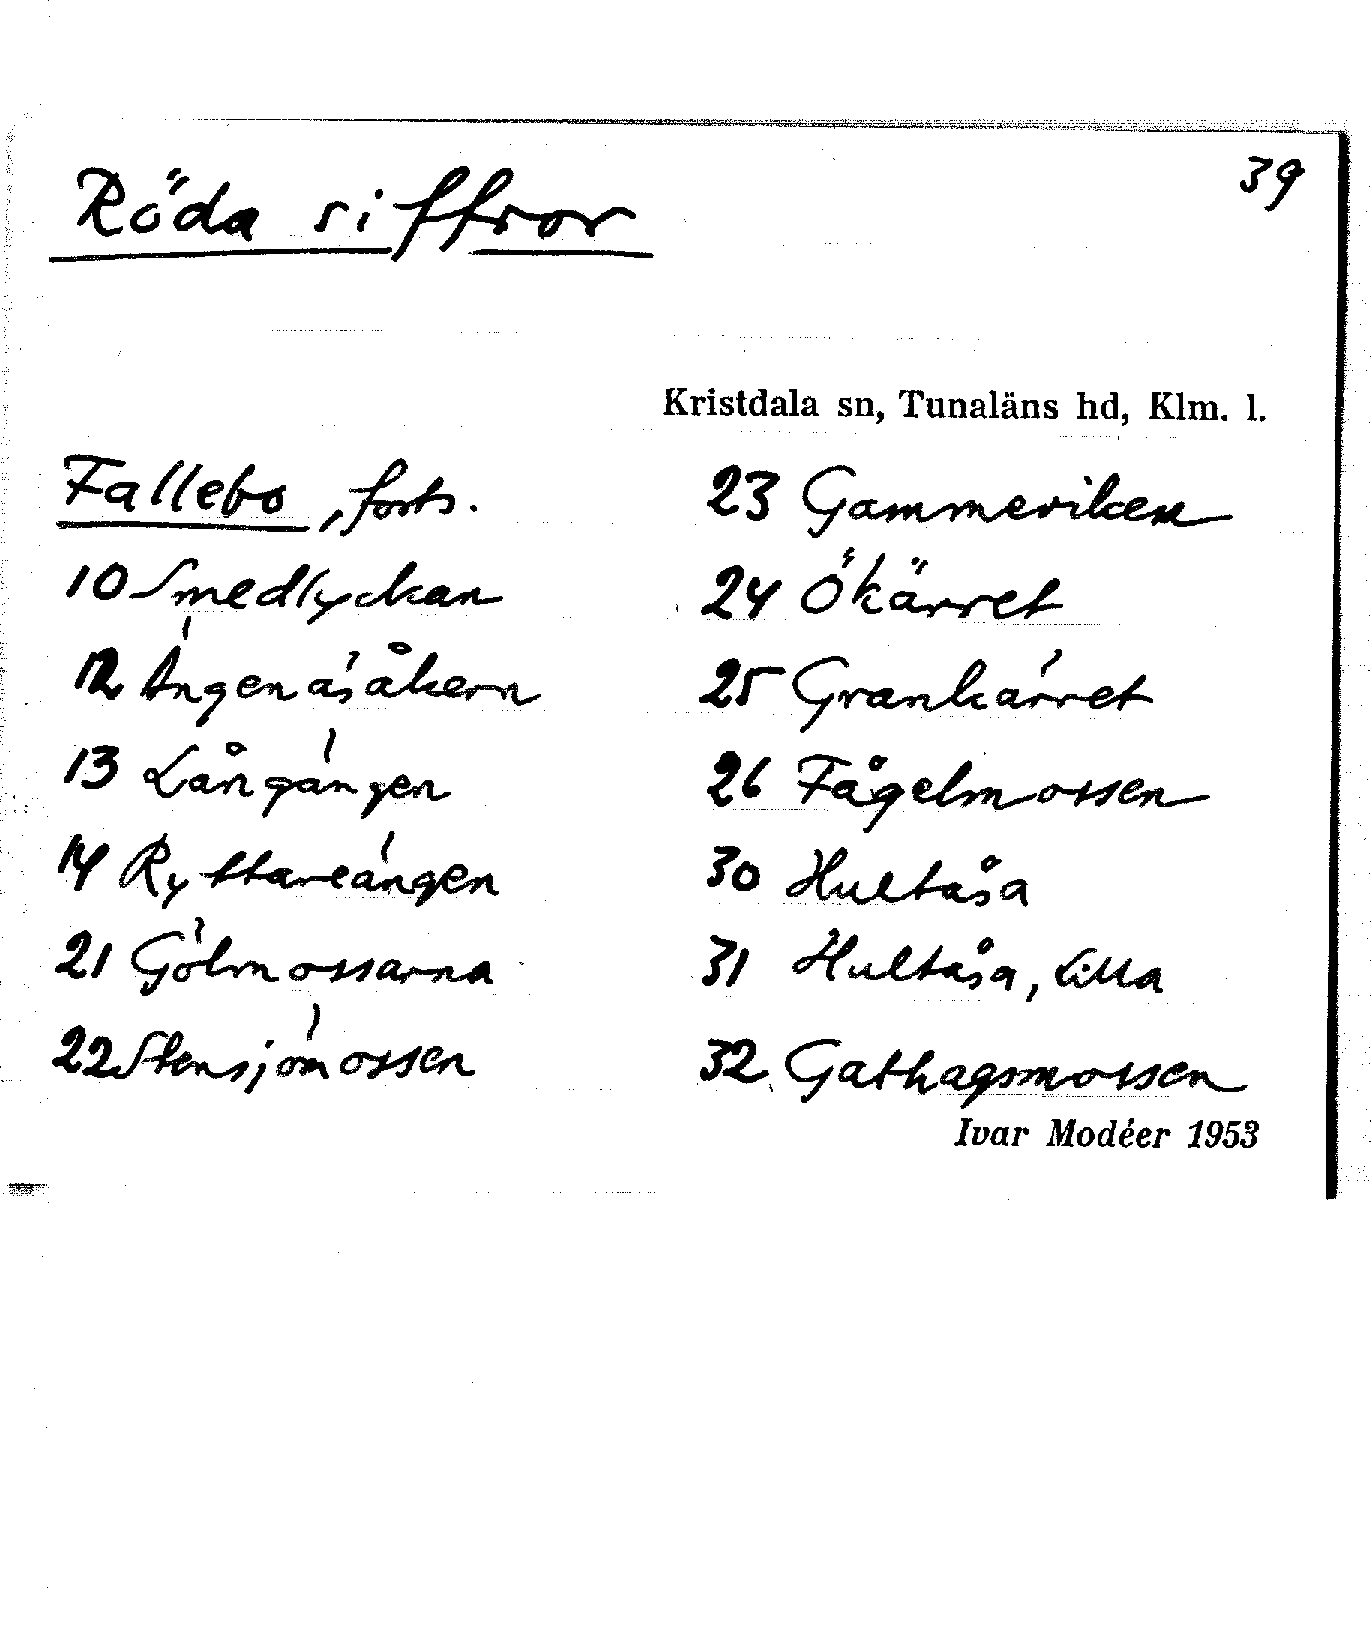 39
Röda siffror
Kristdala sn, Tunaläns hd, Klm. l.
Fallebo, forts.
10 Smedlyckan
12 Ängenäsåkern
13 Långängen
14 Ryttareängen
21 Gölmossarna
22 Stensjömossen
23 Gammeviken
24 Ökärret
25 Grankärret
26 Fågelmossen
30 Hultåsa
31 Hultåsa, Lilla
32 Gathagsmossen
Ivar Modéer 1953